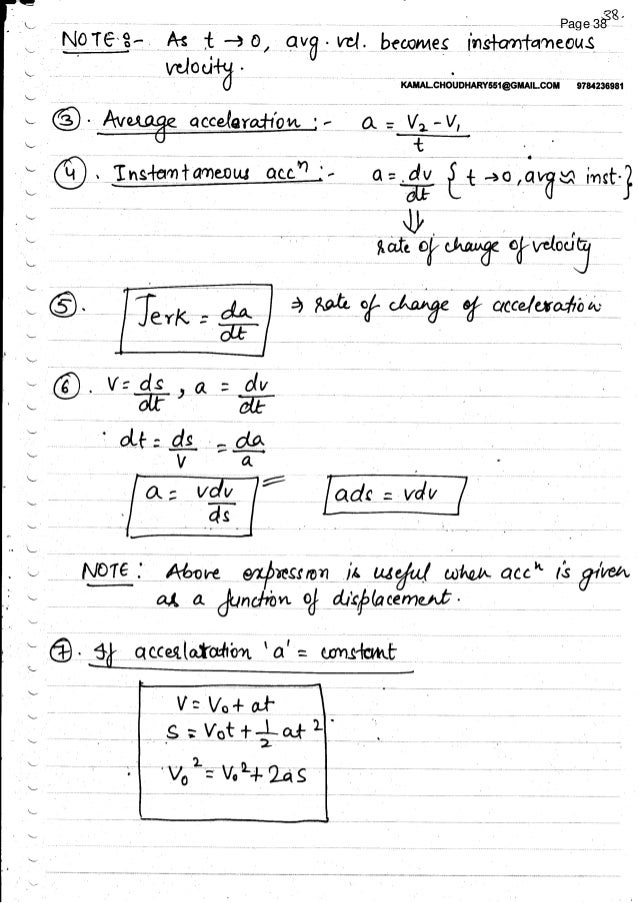 38.
Page 38
NOTE:- As t → 0, avg. vel. becomes instantaneous
velocity.
KAMAL.CHOUDHARY551@GMAIL.COM 9784236981
③. Average acceleration :- a = V₂ - V₁ / t
④. Instantaneous accⁿ :- a = dv/dt { t → 0, avg ≈ inst. }
⇓
rate of change of velocity
⑤. Jerk = da/dt ⇒ rate of change of acceleration
⑥. V = ds/dt , a = dv/dt
dt = ds/v = da/a
a = vdv/ds = ads = vdv
NOTE: Above expression is useful when accⁿ is given
as a function of displacement.
⑦. If acceslatation 'a' = constant
V = V₀ + at
S = V₀t + 1/2 at²
V₀² = V₀² + 2as